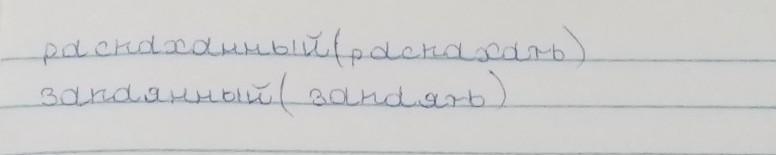 распаханный(распахать)
запаянный( запаять)